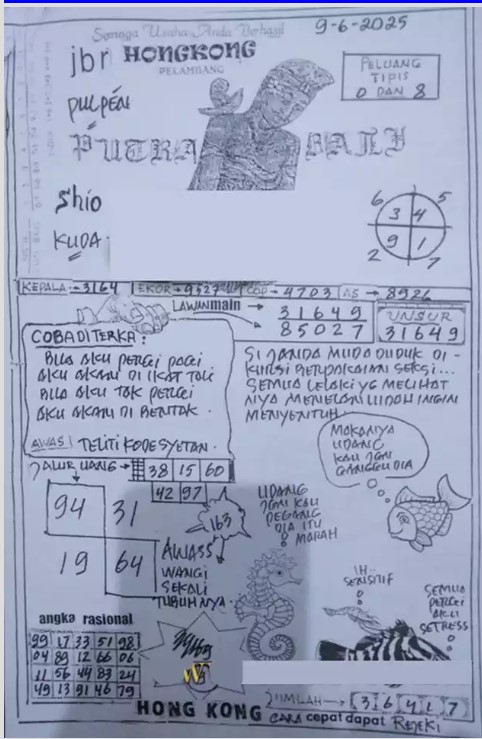 Semoga Usaha Anda Berhasil
9-6-2025
jbr HONGKONG
PELAMBANG
PELUANG
TIPIS
0 DAN 8
PUTRA BALI
Shio
KUDA
6 5
3 4
9 1
2 7
KEPALA → 3164 EKOR → 9527 COP → 4703 AS → 8926
LAWAN main → 31649
→ 85027
UNSUR
31649
COBA DITERKA:
BILA AKU PERGI PAGI
AKU AKAN DI IKAT TALI
BILA AKU TAK PERGI
AKU AKAN DI BENTAK.
AWAS! TELITI KODE SYETAN.
SI JANDA MUDA DUDUK DI-
SEMUA LELAKI YG MELIHAT
NYA MENELAN LUDAH INGIN
MENYENTUH
MAKANYA
UDANG
KAU JGN
GANGGU DIA
JALUR UANG → 38 15 60
42 97
94 31
19 64
163
AWASS
WANGI
SEKALI
TUBUHNYA.
UDANG
JGN KAU
PEGANG
DIA ITU
MARAH
IH..
SENSITIF
SEMUA
PERGI
AKU
SETRESS
angka rasional
99 17 33 51 98
04 89 12 66 06
11 56 44 83 24
49 13 91 46 79
JUMLAH → 3 6 4 1 7
HONG KONG CARA cepat dapat REJEKI